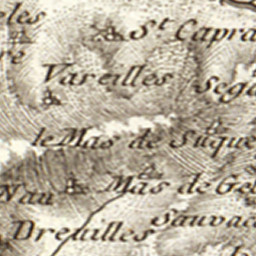 les
St. Capra
re
Vareilles
Sega
le Mas de Suque
Nau
Mas de Gel
Sauvac
Dreuilles